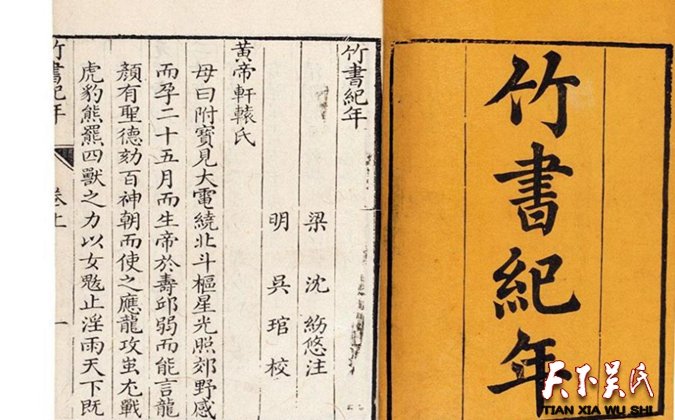 竹書紀年
竹書紀年
梁 沈 約 注
明 吳 琯 校
黃帝軒轅氏
母曰附寶見大電繞北斗樞星光照郊野感
而孕二十五月而生帝於壽邱弱而能言龍
顏有聖德劾百神朝而使之應龍攻蚩尤戰
虎豹熊羆四獸之力以女魃止淫雨天下既
竹書紀年 卷上 一
天下吴氏
TIAN XIA WU SHI